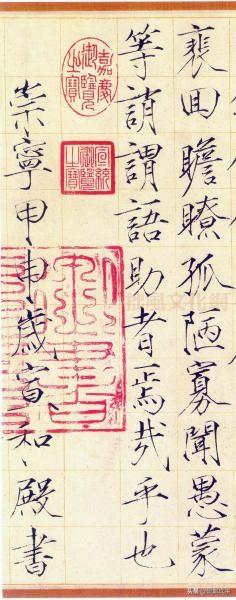 裵回瞻瞭孤陋寡聞愚蒙
等誚謂語助者焉哉乎也
崇寧甲申歲宣和殿書
嘉慶御覽之寶
宣統御覽之寶